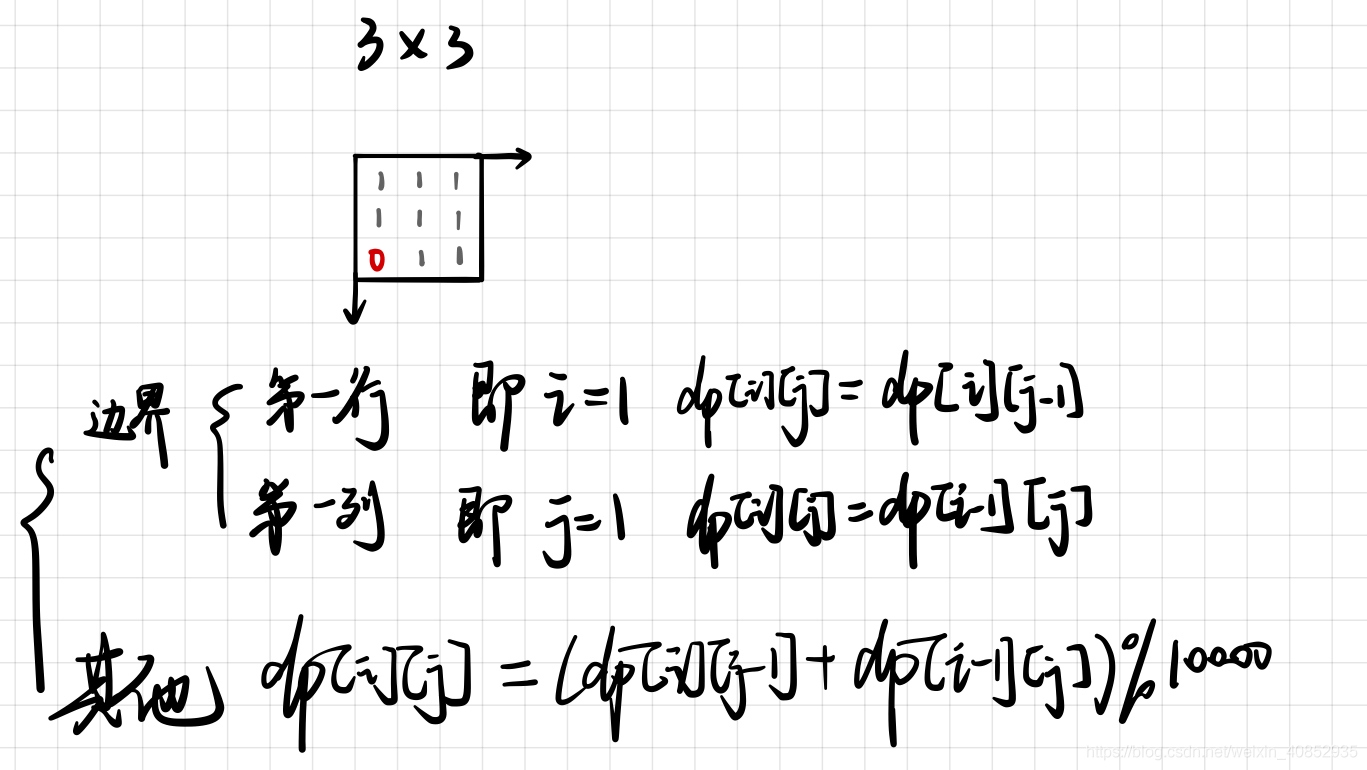 3 × 3
1 1 1
1 1 1
0 1 1
边界 { 第一行 即 i=1 dp[i][j] = dp[i][j-1]
第一列 即 j=1 dp[i][j] = dp[i-1][j]
其他 dp[i][j] = (dp[i][j-1] + dp[i-1][j]) % 10000
https://blog.csdn.net/weixin_40852935